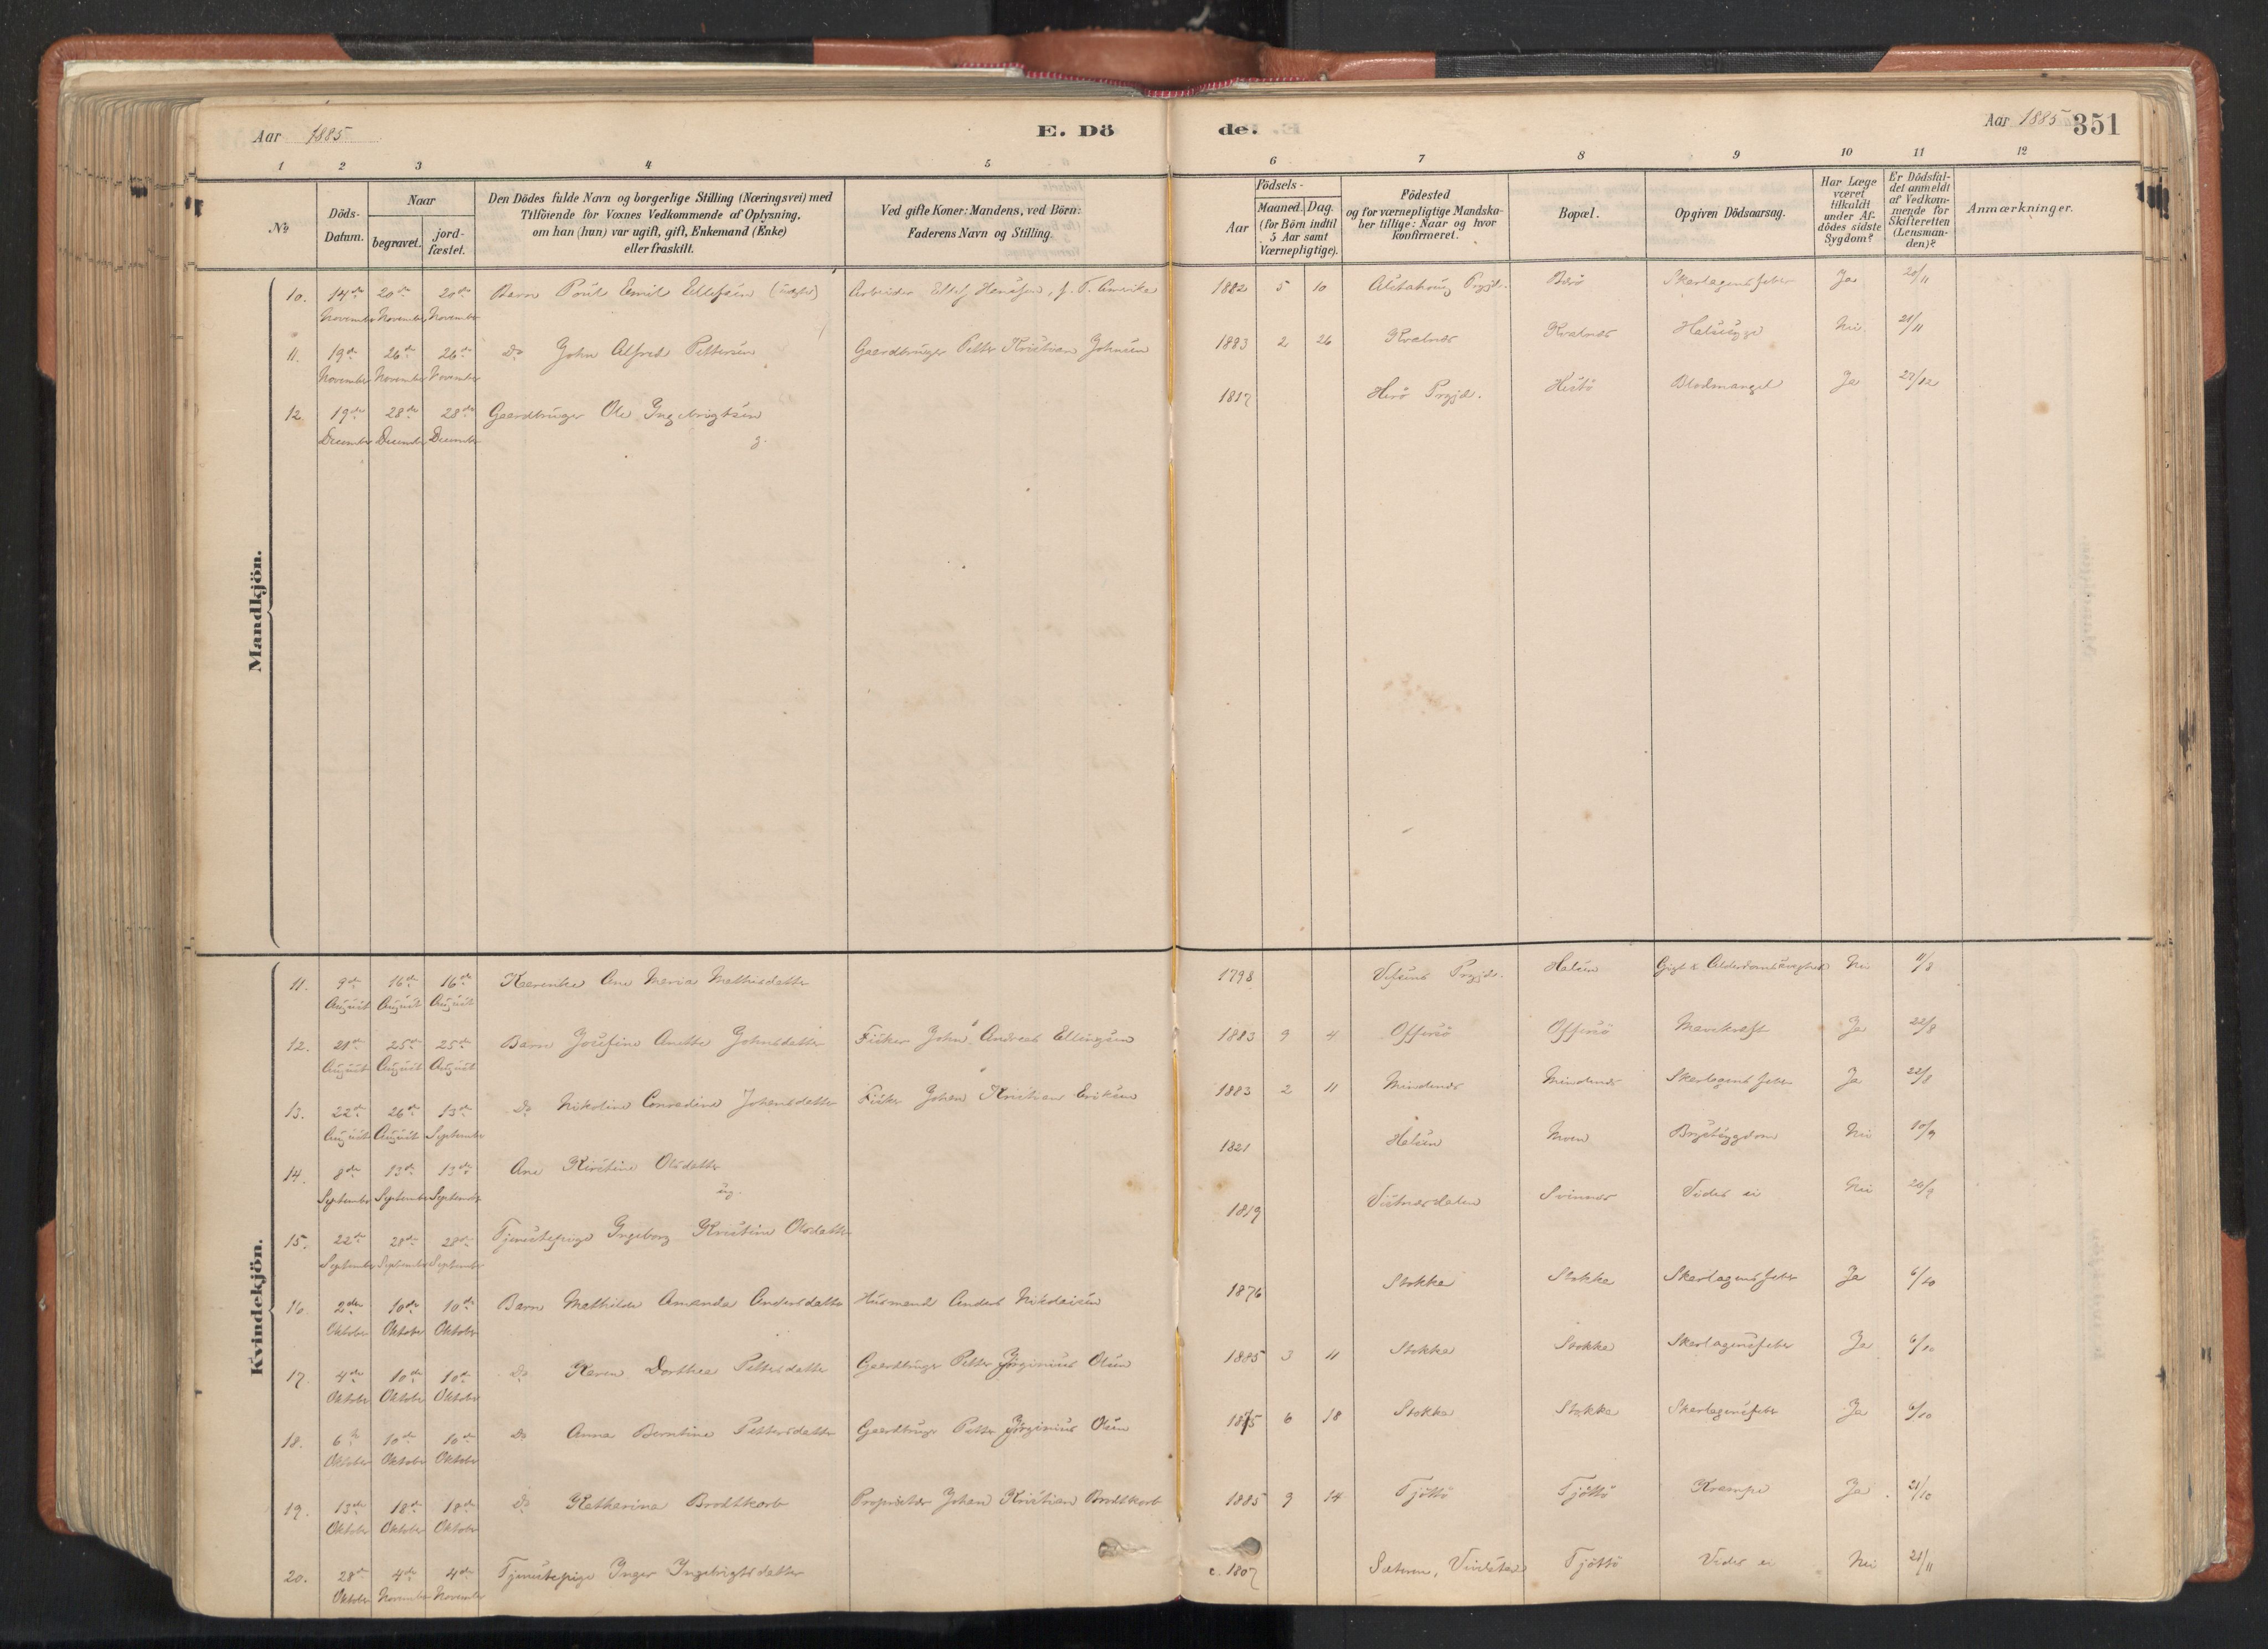 Aar 1885
E. Dö
de.
Aar 1885
351
1 2 3 4 5 6 7 8 9 10 11 12
No
Döds-Datum.
Naar
begravet.
jord-fæstet.
Den Dödes fulde Navn og borgerlige Stilling (Næringsvei) med
Tilföiende for Voxnes Vedkommende af Oplysning,
om han (hun) var ugift, gift, Enkemand (Enke)
eller fraskilt.
Ved gifte Koner: Mandens, ved Börn:
Faderens Navn og Stilling.
Födsels-
Aar
Maaned. Dag.
(for Börn indtil
5 Aar samt
Værnepligtige).
Födested
og for værnepligtige Mandska-
ber tillige: Naar og hvor
konfirmeret.
Bopæl.
Opgiven Dödsaarsag.
Har Læge
været
tilkaldt
under Af-
dödes sidste
Sygdom?
Er Dödsfal-
det anmeldt
af Vedkom-
mende for
Skifteretten
(Lensman-
den)?
Anmærkninger.
Mandkjön.
10. 14de November 20de November 20de November Barn Poul Emil Ellefsen Arbeider 1882 5 10 Alstahoug Prgjd. Skarlagensfeber Ja 20/11
11. 19de November 26de November 26de November Do John Alfred Pettersen Gaardbruger Petter Kristian Johnsen 1883 2 26 Kvalnæs Kvalnæs Halssyge Nei 21/11
12. 19de December 28de December 28de December Gaardbruger Ole Ingebrigtsen g. 1817 Herö Prgjd. Blodmangel Ja 22/12
Kvindekjön.
11. 9de August 16de August 16de August Kaarenke Ane Maria Mathisdatter 1798 Prgjd. Halsen Gigt & Alderdomssvaghed Nei 11/8
12. 21de August 25de August 25de August Barn Josefine Anette Johnsdatter Fisker John Andreas Ellingsen 1883 9 4 Offersö Offersö Mavekræft Ja 22/8
13. 22de August 26de August 13de September Do Nikoline Conradine Johansdatter Fisker Johan Kristian Eriksen 1883 2 11 Mindenæs Mindenæs Skarlagensfeber Ja 22/8
14. 8de September 13de September 13de September Ane Kirstine Olsdatter ug. 1821 Halsen Moen Brystsygdom Nei 10/9
15. 22de September 28de September 28de September Tjenestepige Ingeborg Kristine Olsdatter 1819 Vistnæsdalen Svinnæs Vides ei Nei 26/9
16. 2den Oktober 10de Oktober 10de Oktober Barn Mathilde Amanda Andersdatter Husmand Anders Nikolaisen 1876 Stokka Stokka Skarlagensfeber Ja 6/10
17. 4de Oktober 10de Oktober 10de Oktober Do Karen Dorthea Pettersdatter Gaardbruger Petter Jörginius Olsen 1885 3 11 Stokka Stokka Skarlagensfeber Ja 6/10
18. 6te Oktober 10de Oktober 10de Oktober Do Anna Berntine Pettersdatter Gaardbruger Petter Jörginius Olsen 1875 6 18 Stokka Stokka Skarlagensfeber Ja 6/10
19. 13de Oktober 18de Oktober 18de Oktober Do Katharina Brodtkorb Proprietær Johan Kristian Brodtkorb 1885 9 14 Tjöttö Tjöttö Krampe Ja 21/10
20. 28de Oktober 4de November 4de November Tjenestepige Inger Ingebrigtsdatter c. 1807 Tjöttö Vides ei Nei 21/11